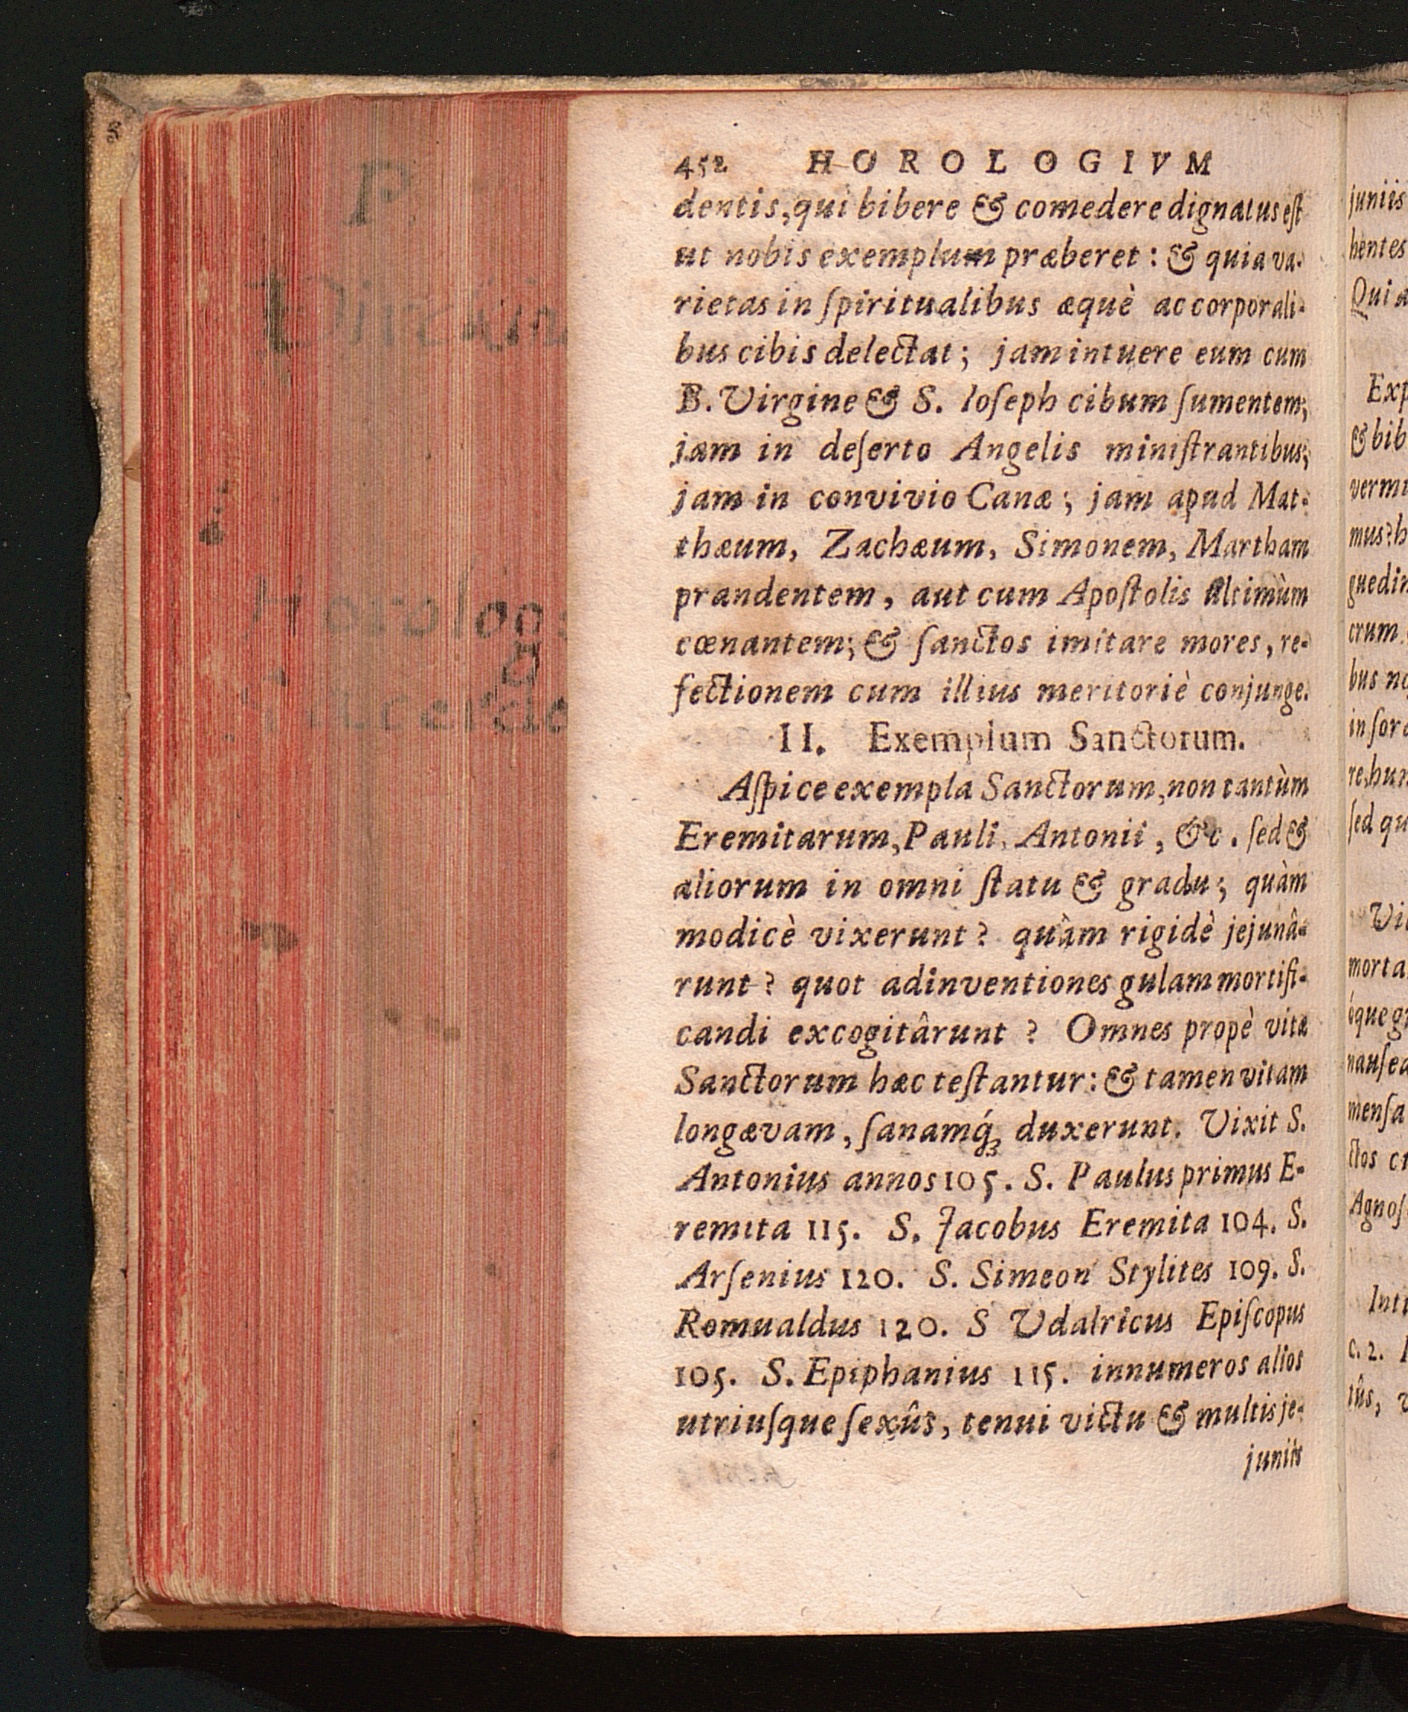 452 HOROLOGIVM
dentis, qui bibere & comedere dignatus est
ut nobis exemplum præberet : & quia va-
rietas in ſpiritualibus æquè ac corporali-
bus cibis delectat ; jam intuere eum cum
B. Virgine & S. Ioſeph cibum ſumentem;
jam in deſerto Angelis miniſtrantibus;
jam in convivio Canæ ; jam apud Mat-
thæum, Zachæum, Simonem, Martham
prandentem , aut cum Apoſtolis ultimùm
cœnantem; & ſanctos imitare mores, re-
fectionem cum illius meritoriè conjunge.
II. Exemplum Sanctorum.
Aſpice exempla Sanctorum, non tantùm
Eremitarum, Pauli, Antonii , &c . ſed &
aliorum in omni ſtatu & gradu ; quàm
modicè vixerunt ? quàm rigidè jejunâ-
runt ? quot adinventiones gulam mortifi-
candi excogitârunt ? Omnes propè vitæ
Sanctorum hæc teſtantur : & tamen vitam
longævam , ſanamq́ꝫ duxerunt. Vixit S.
Antonius annos 105. S. Paulus primus E-
remita 115. S. Jacobus Eremita 104. S.
Arſenius 120. S. Simeon Stylites 109. S.
Romualdus 120. S Udalricus Epiſcopus
105. S. Epiphanius 115. innumeros alios
utriuſque ſexûs, tenui victu & multis je-
juniis
juniis
hentes
Qui
Exp
& bib
vermi
mus? h
guedin
crum
bus no
in ſor
re, hu
ſed qu
morta
óque g
nauſea
menſa
ctos
Agnoſ
c. 2.
tûs,